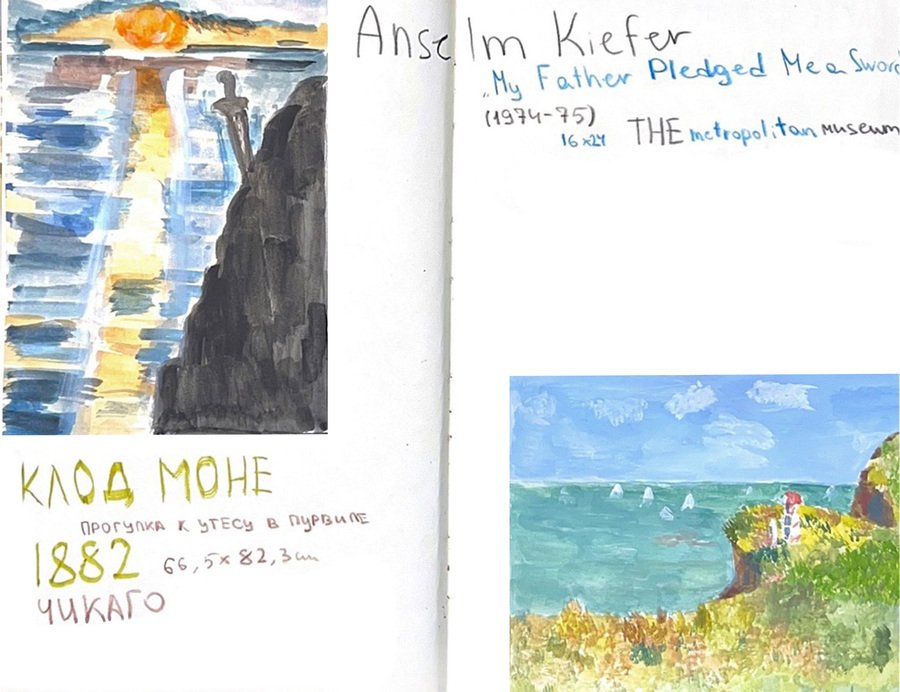 Anselm Kiefer
"My Father Pledged Me a Sword
(1974-75)
16x24 THE metropolitan museum
КЛОД МОНЕ
ПРОГУЛКА К УТЕСУ В ПУРВИЛЕ
1882 66,5x82,3 cm
ЧИКАГО